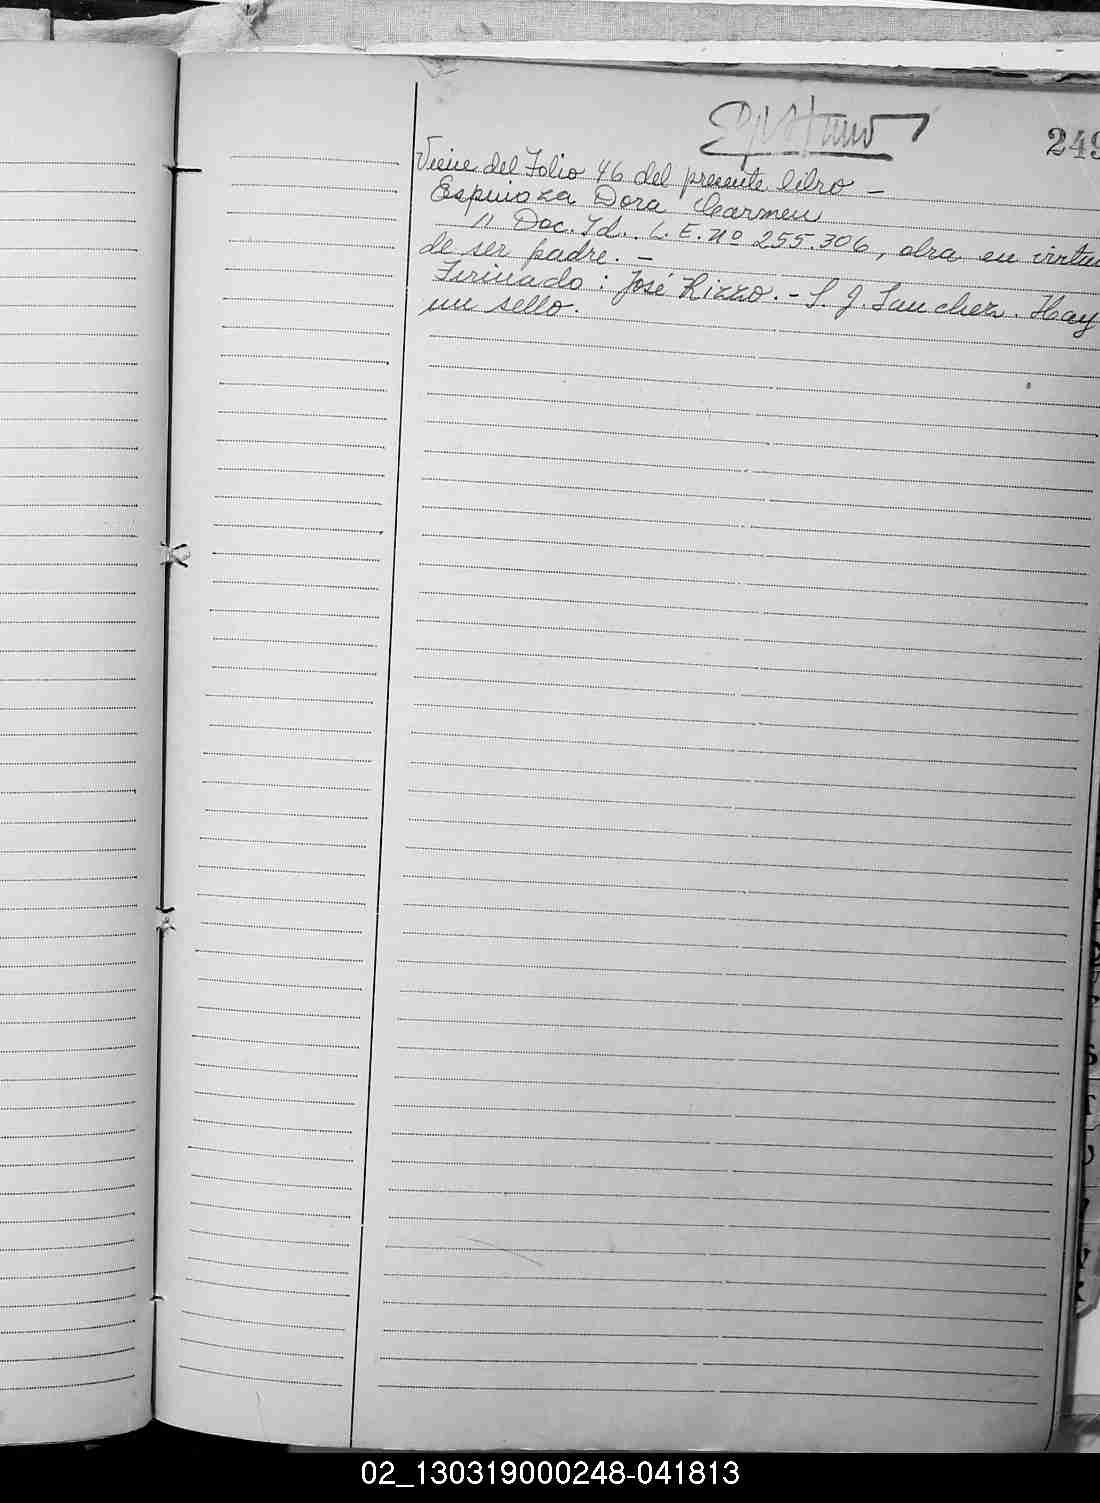 249
Viene del Folio 46 del presente libro –
Espinoza Dora Carmen
" Doc. Id. L. E. Nº 255.306, obra en virtud
de ser padre. –
Firmado: José Rizzo. – S. J. Sanchez. Hay
un sello.
02_130319000248-041813